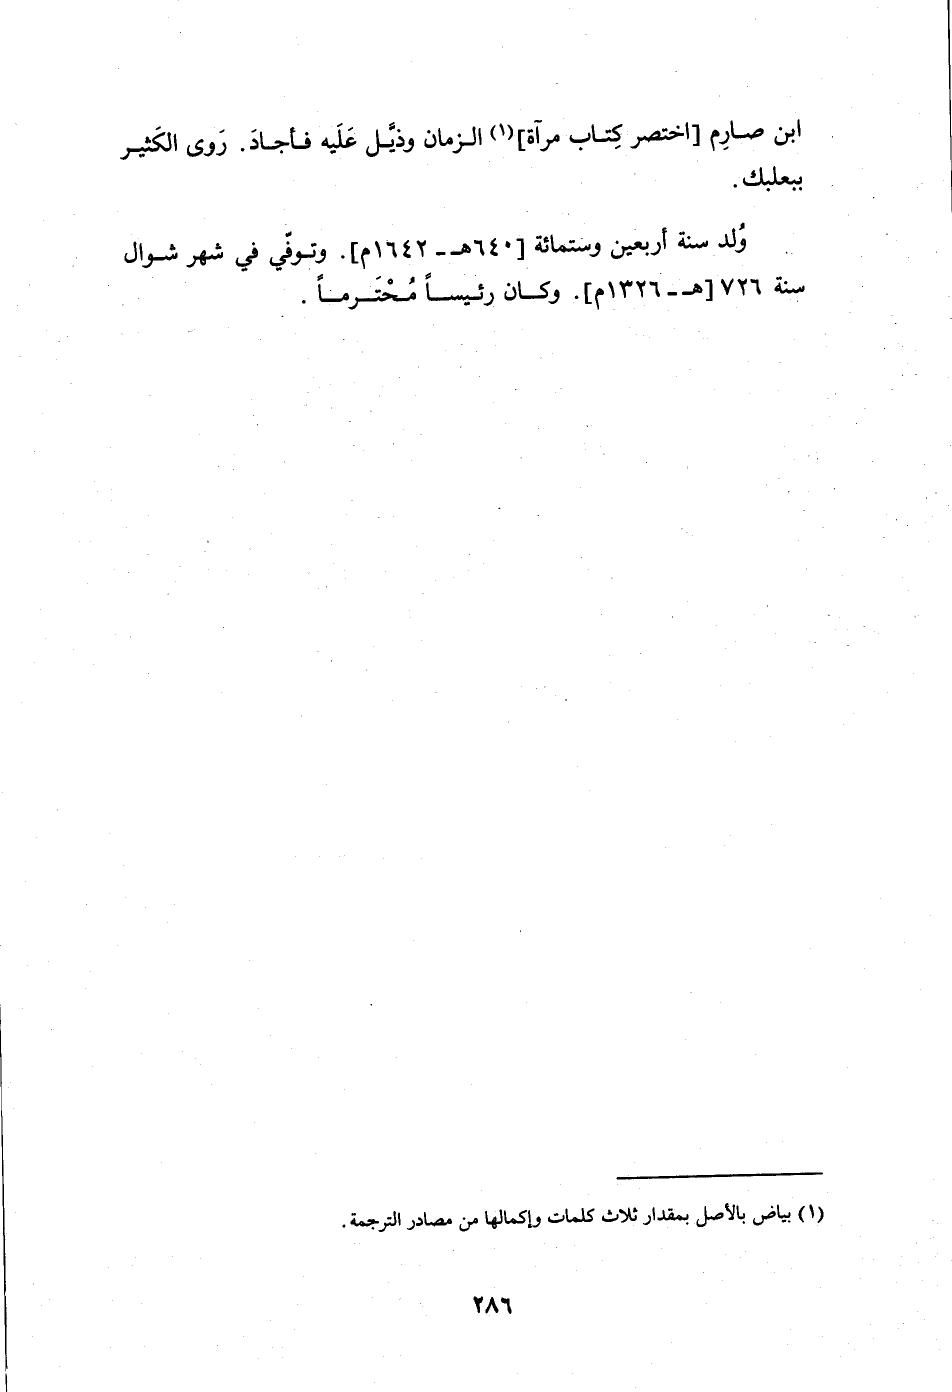 ابن صارِم [اختصر كِتاب مرآة]⁽¹⁾ الزمان وذيَّل عَلَيه فأجادَ. رَوى الكَثير
ببعلبك.
وُلد سنة أربعين وستمائة [٦٤٠هـ - ١٦٤٢م]. وتوفّي في شهر شوال
سنة ٧٢٦ [هـ - ١٣٢٦م]. وكان رئيساً مُحْتَرماً.
(١) بياض بالأصل بمقدار ثلاث كلمات وإكمالها من مصادر الترجمة.
٢٨٦